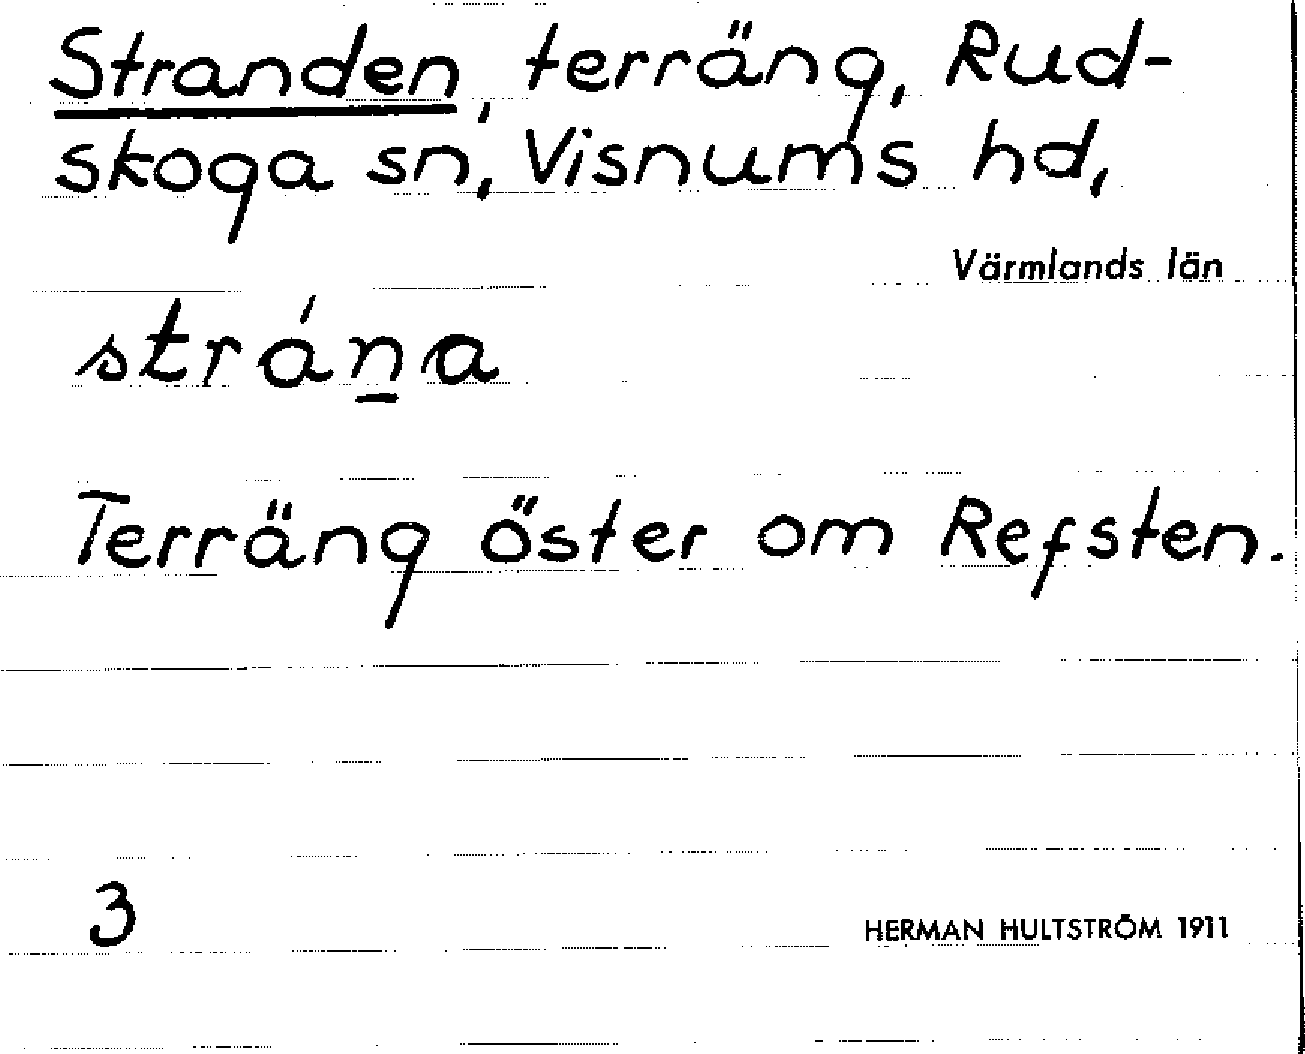 Stranden, terräng, Rud-
skoga sn, Visnums hd,
Värmlands län
strána
Terräng öster om Refsten.
3
HERMAN HULTSTRÖM 1911